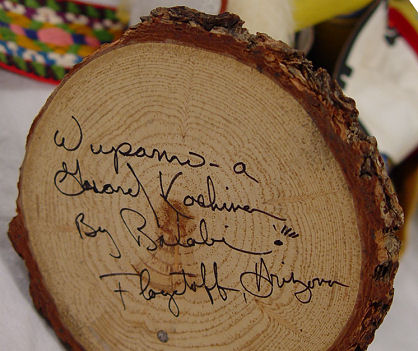 Wupamo-a
Guard Kachina
By Balabi
Flagstaff, Arizona